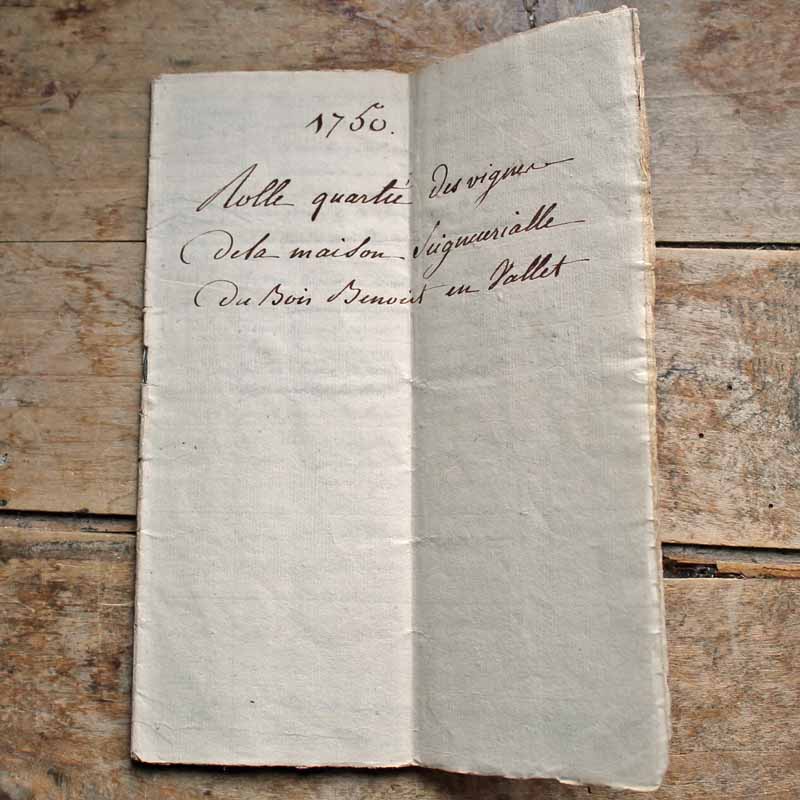 1750.
Rolle quartié des vignes
de la maison Seigneurialle
du Bois Benoist en Vallet